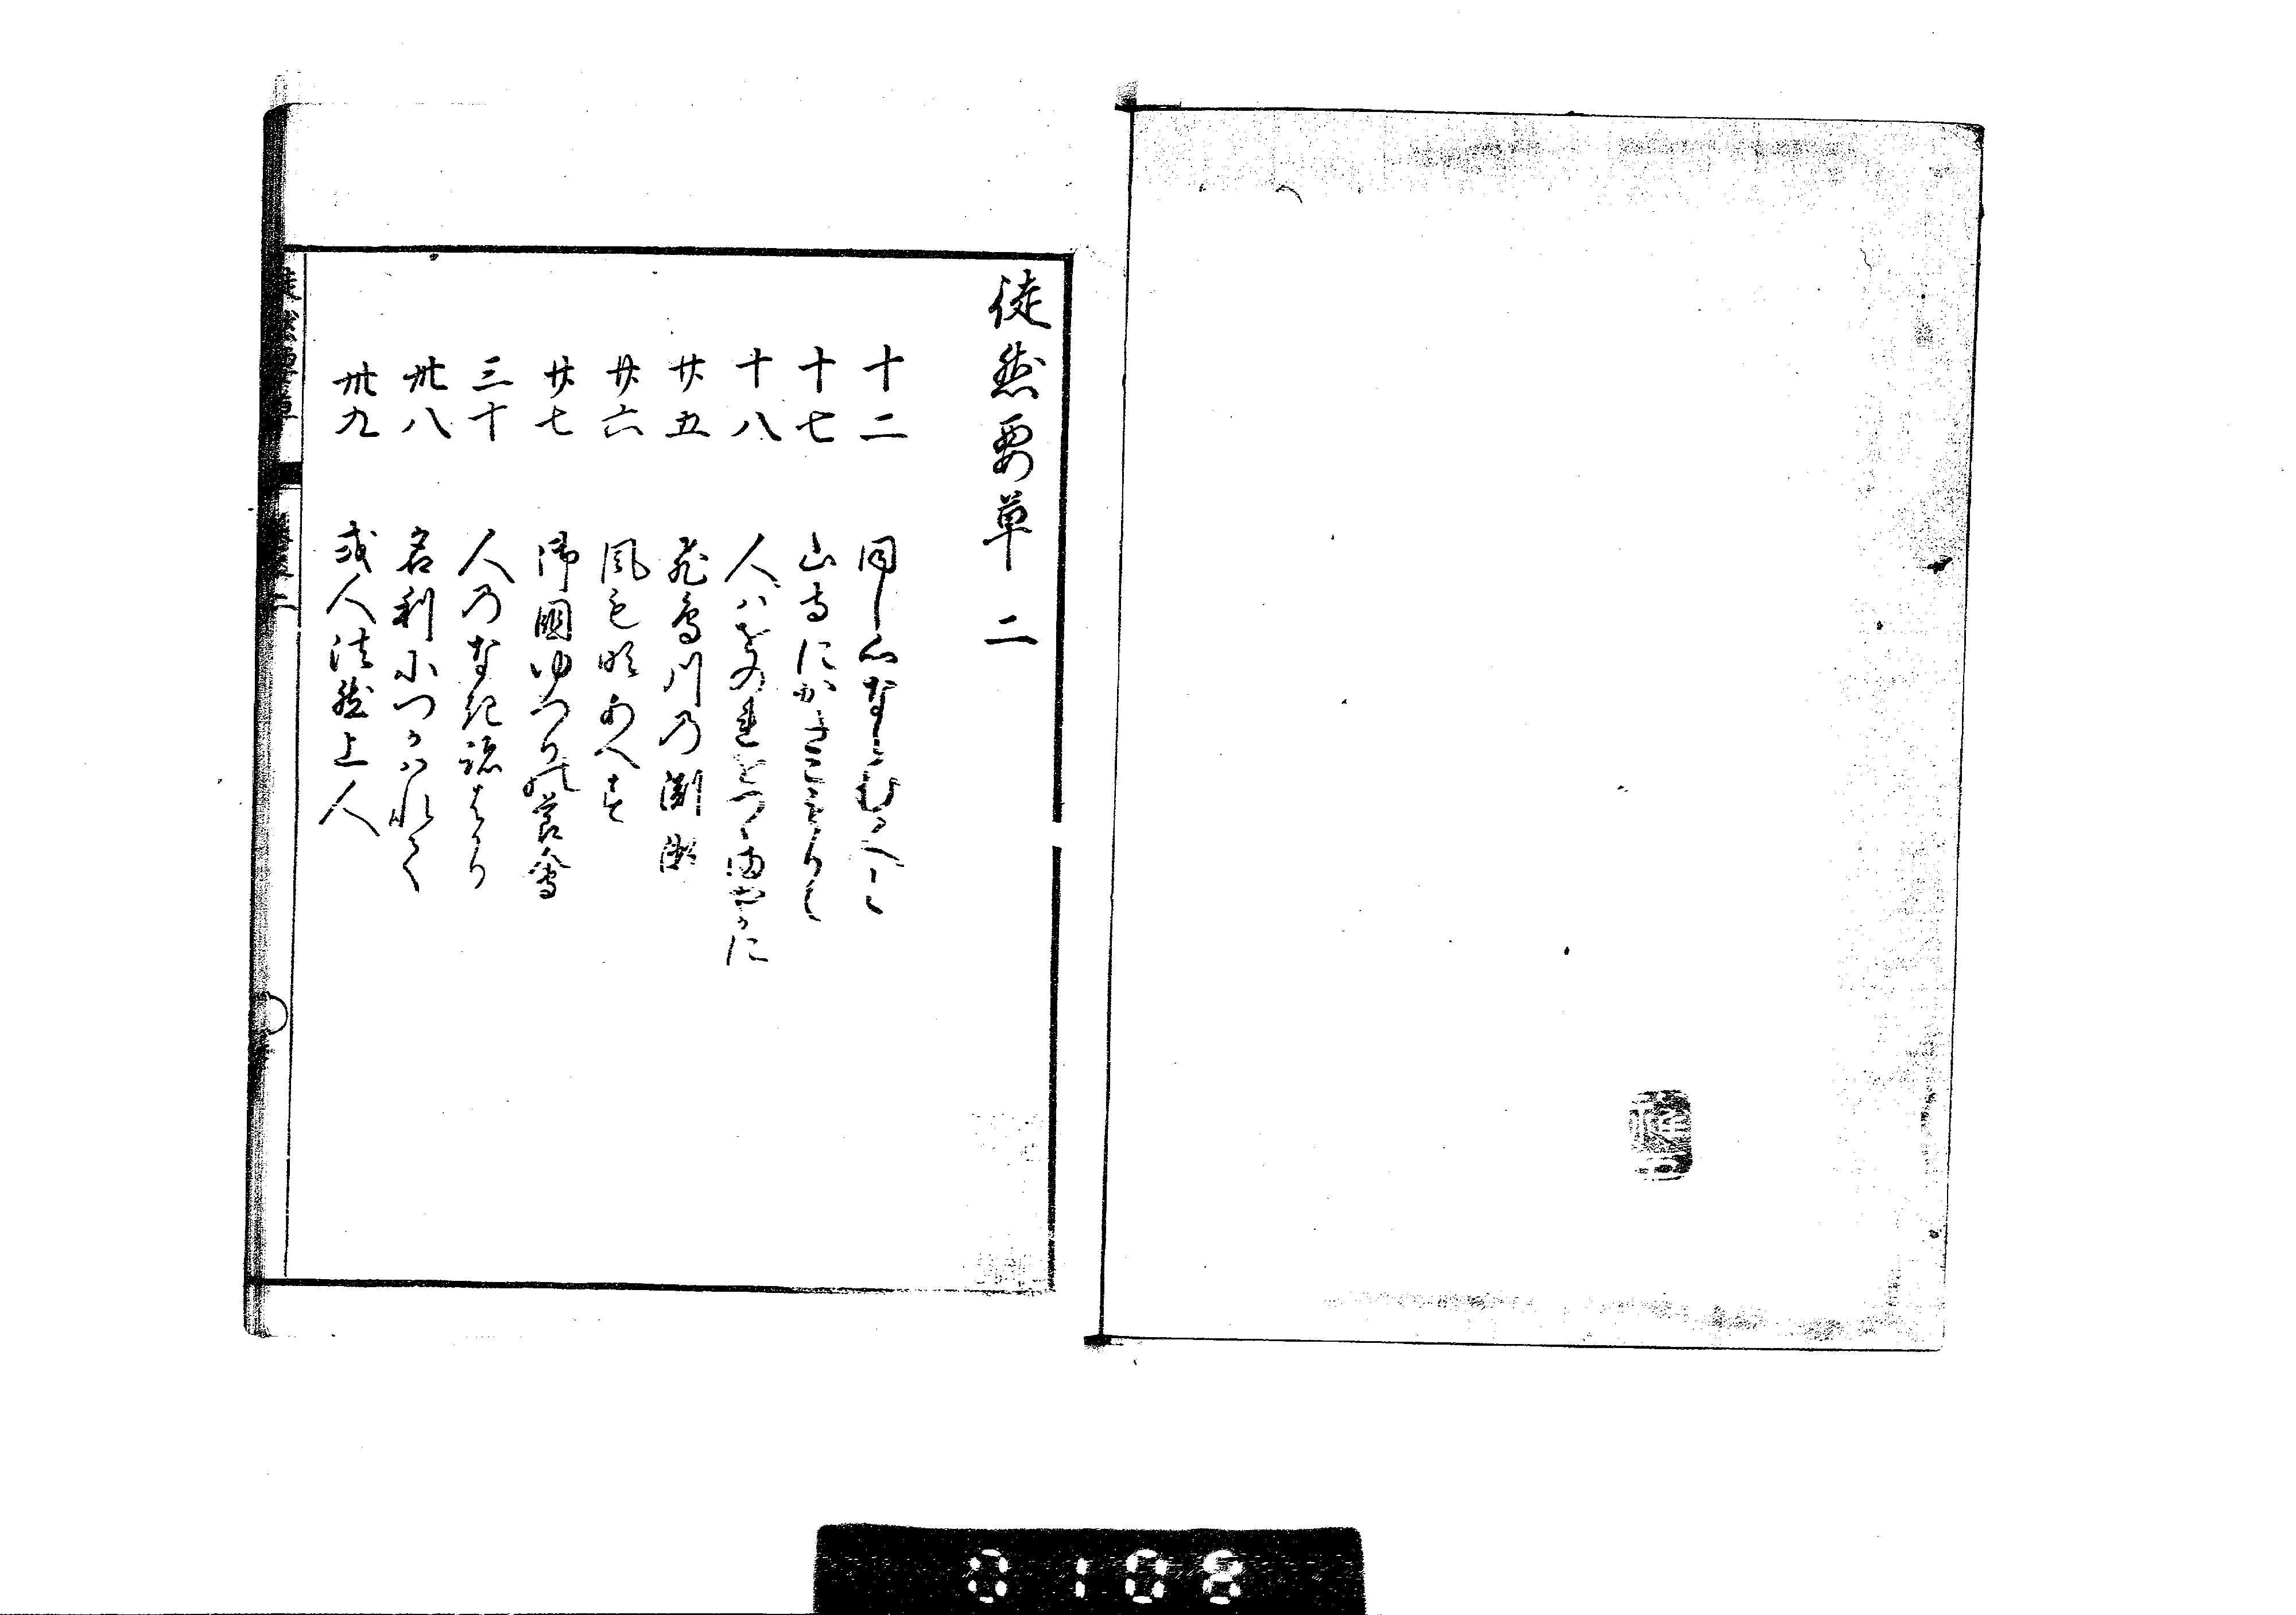 徒然要草 二
十二 同し心ならむ人と
十七 山寺にかきこもりて
十八 人はをのれをつゝまやかに
廿五 飛鳥川乃渕瀬
廿六 風も吹あへす
廿七 御國ゆつりの節會
三十 人乃なき跡はかり
卅八 名利につかはれて
卅九 或人法然上人
0108